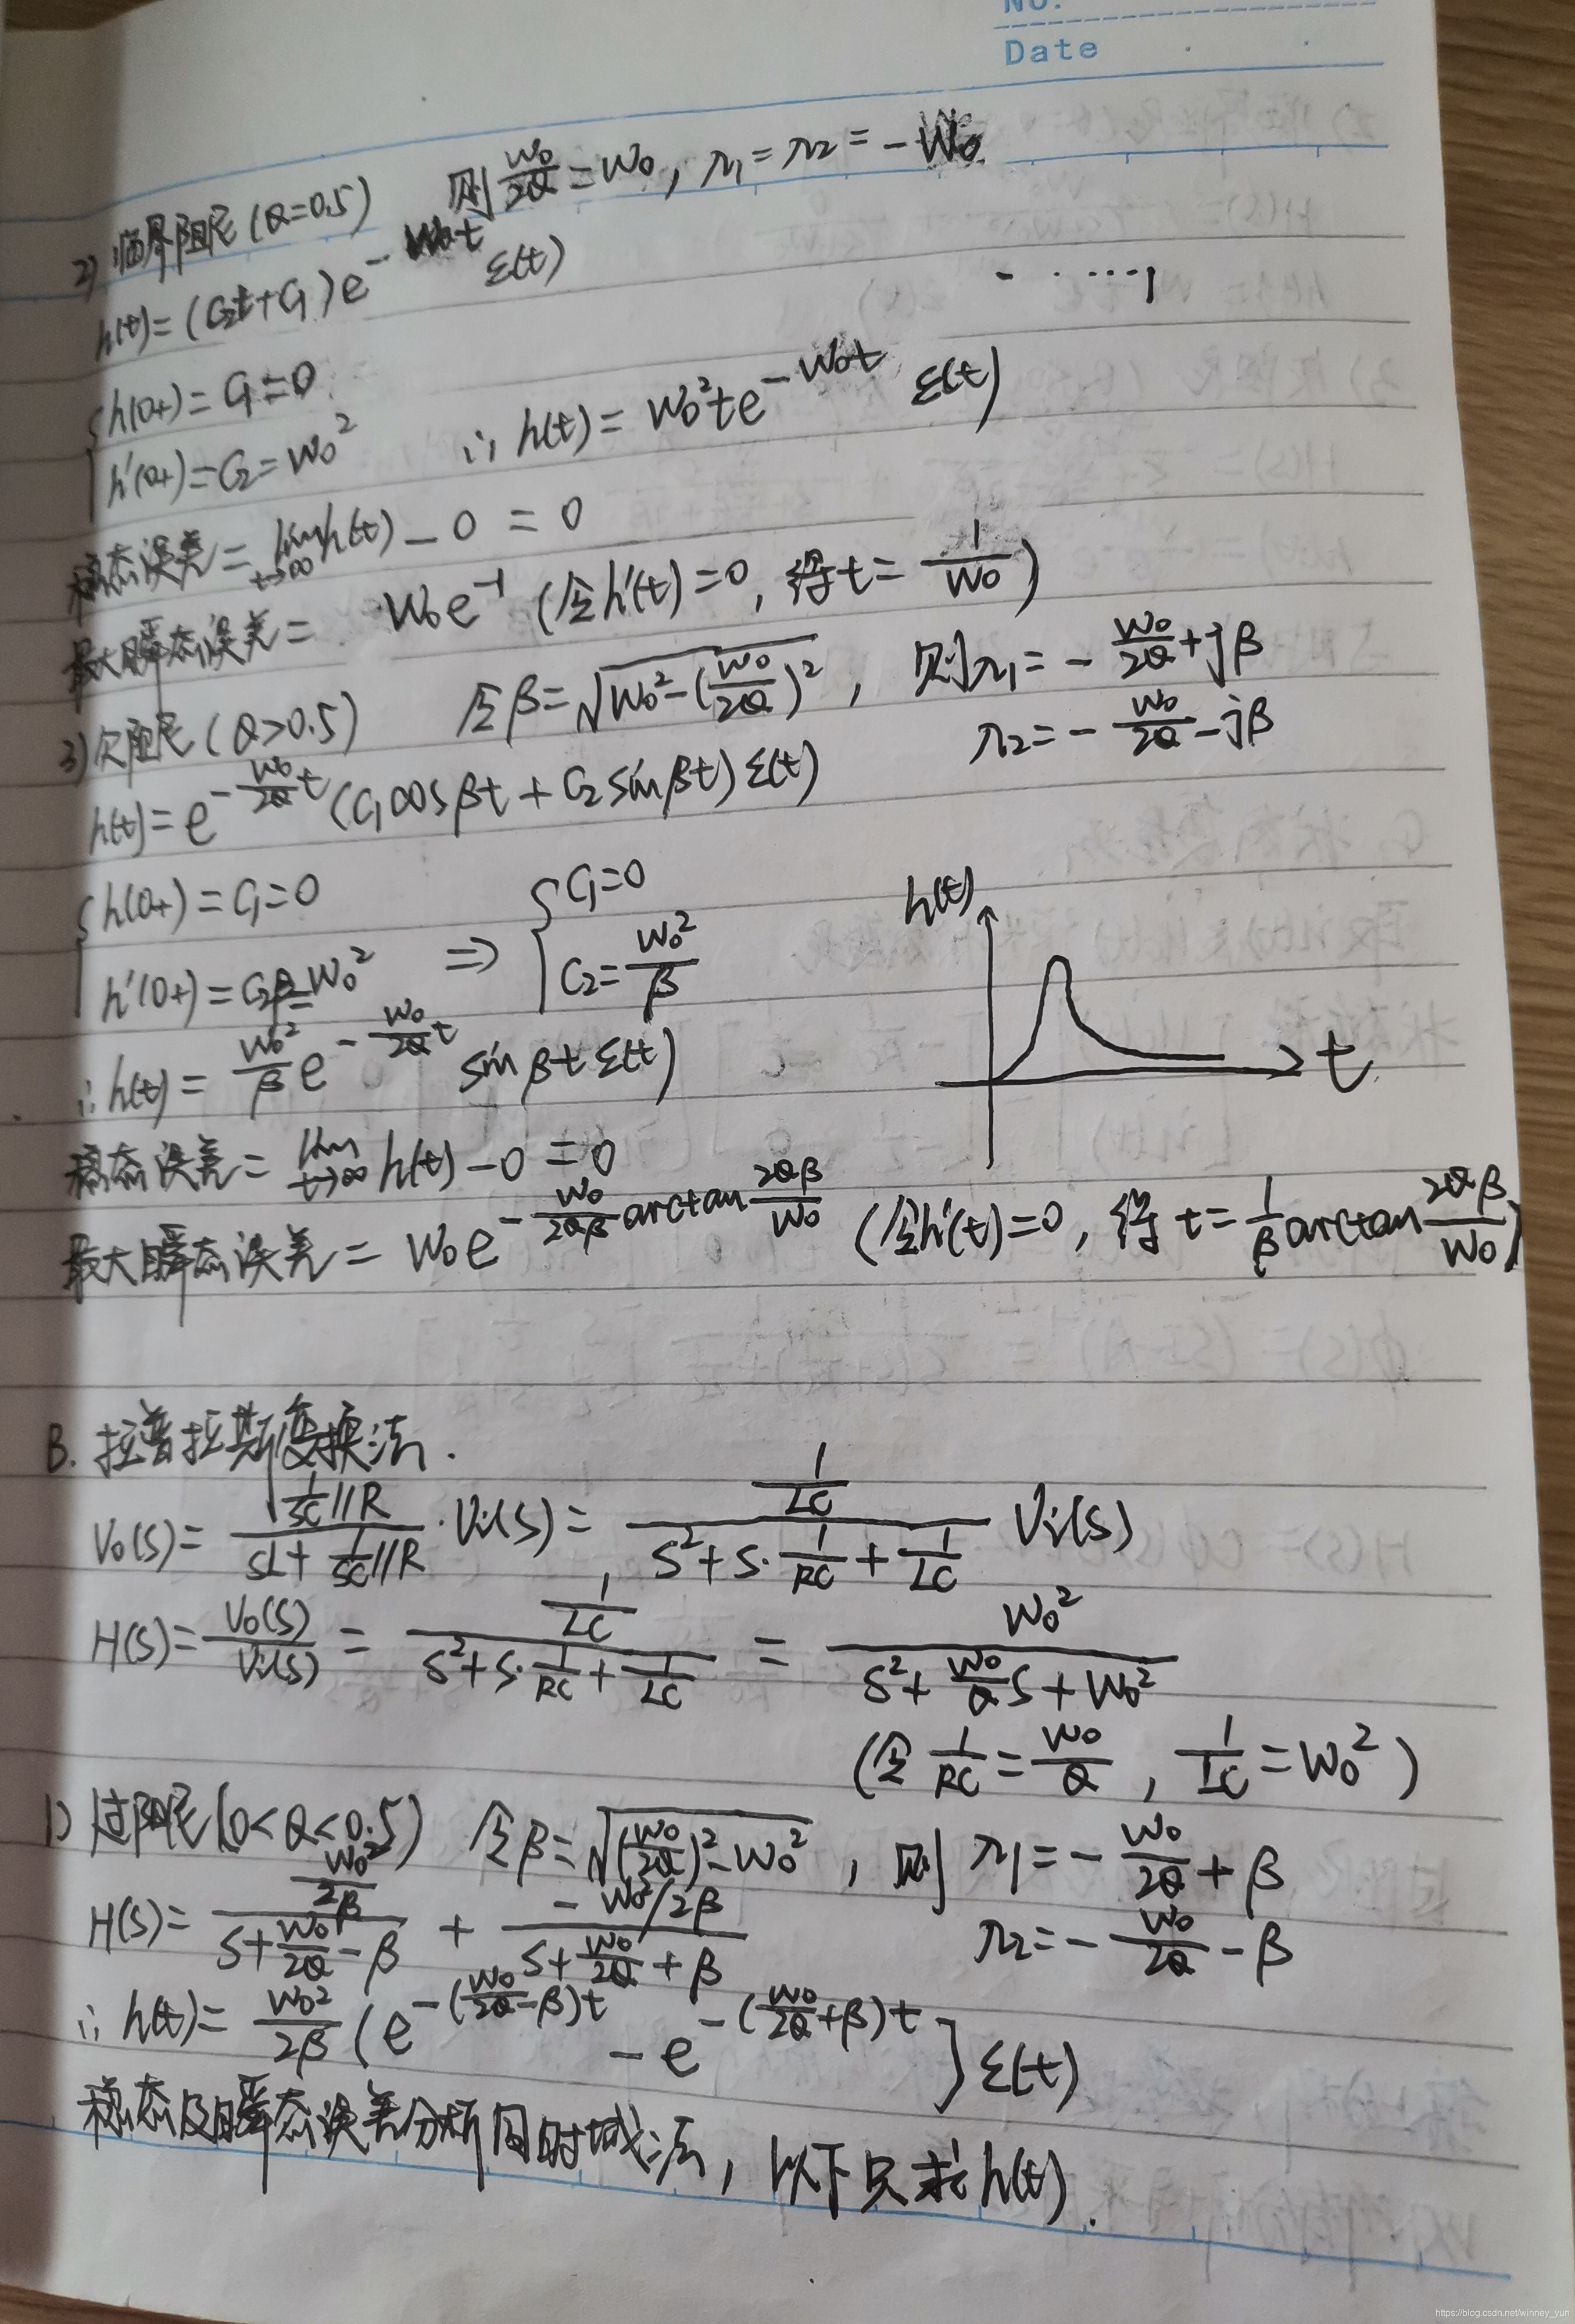 No.
Date
2) 临界阻尼(Q=0.5) 则 w₀/2Q = w₀, λ₁=λ₂=-w₀
h(t)=(C₂t+C₁)e^{-w₀t} ε(t)
{h(0+)=C₁=0
h'(0+)=C₂=w₀² ∴ h(t)=w₀²te^{-w₀t} ε(t)
稳态误差=lim_{t→∞}h(t)-0=0
最大瞬态误差= w₀e^{-1} (令h'(t)=0, 得t=1/w₀)
3) 欠阻尼(Q>0.5) 令β=√(w₀²-(w₀/2Q)²), 则λ₁=-w₀/2Q+jβ
λ₂=-w₀/2Q-jβ
h(t)=e^{-w₀/2Q t}(C₁cosβt+C₂sinβt)ε(t)
{h(0+)=C₁=0 ⇒ {C₁=0
h'(0+)=C₂β=w₀² C₂=w₀²/β
h(t)
t
∴h(t)=w₀²/β e^{-w₀/2Q t} sinβt ε(t)
稳态误差=lim_{t→∞}h(t)-0=0
最大瞬态误差=w₀e^{-w₀/2Qβ arctan 2Qβ/w₀} (令h'(t)=0, 得t=1/β arctan 2Qβ/w₀)
B. 拉普拉斯变换法.
V₀(S)=(1/SC//R)/(SL+1/SC//R)·Vi(S)=(1/LC)/(S²+S·1/RC+1/LC) Vi(S)
H(S)=V₀(S)/Vi(S)=(1/LC)/(S²+S·1/RC+1/LC)=w₀²/(S²+w₀/Q S+w₀²)
(令1/RC=w₀/Q, 1/LC=w₀²)
1) 过阻尼(0<Q<0.5) 令β=√((w₀/2Q)²-w₀²), 则λ₁=-w₀/2Q+β
λ₂=-w₀/2Q-β
H(S)=(w₀²/2β)/(S+w₀/2Q-β)+(-w₀²/2β)/(S+w₀/2Q+β)
∴h(t)=w₀²/2β(e^{-(w₀/2Q-β)t}-e^{-(w₀/2Q+β)t}]ε(t)
稳态及瞬态误差分析同时域法, 以下只求h(t).
https://blog.csdn.net/winney_yun